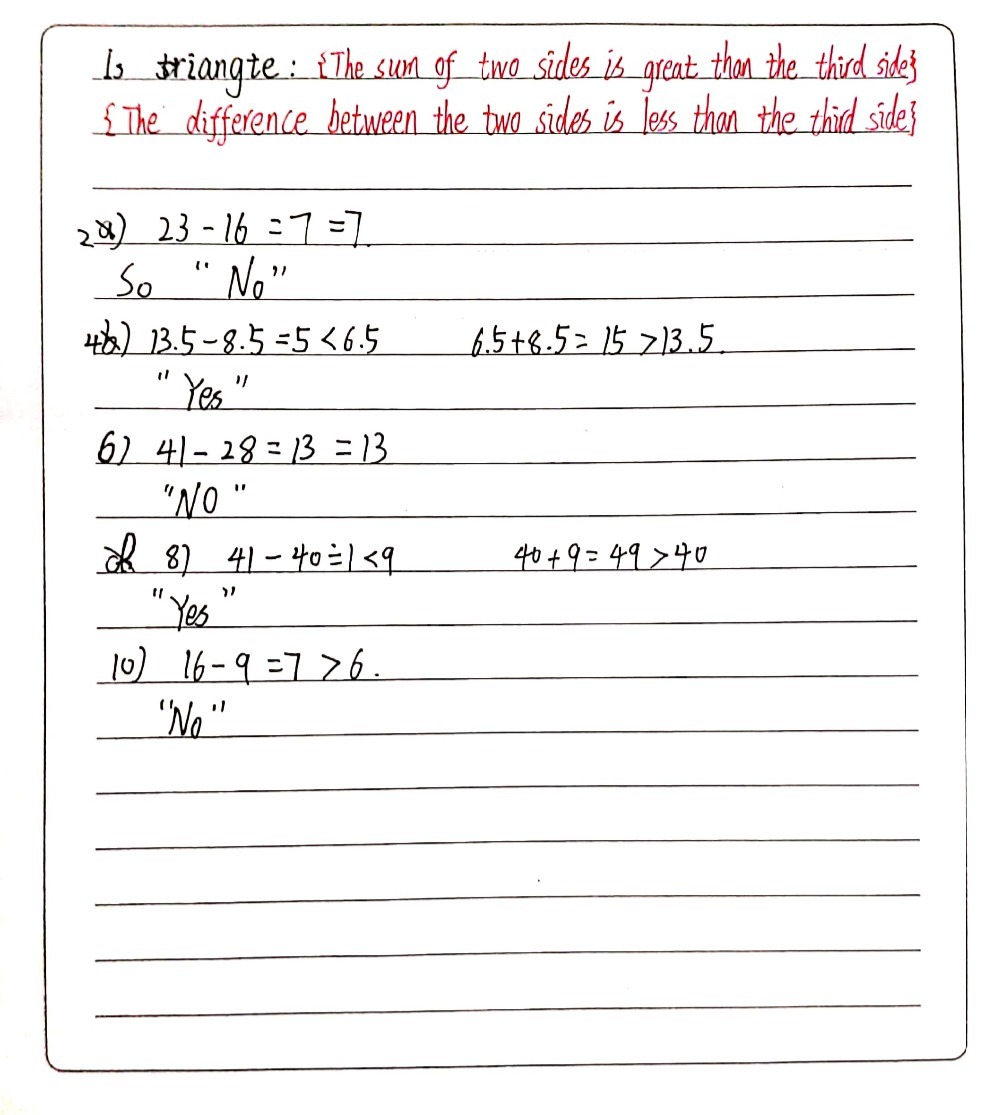 Is triangte: {The sum of two sides is great than the third side}
{The difference between the two sides is less than the third side}
2) 23 - 16 = 7 = 7.
So "No"
4) 13.5 - 8.5 = 5 < 6.5 6.5 + 8.5 = 15 > 13.5.
"Yes"
6) 41 - 28 = 13 = 13
"NO"
8) 41 - 40 = 1 < 9 40 + 9 = 49 > 40
"Yes"
10) 16 - 9 = 7 > 6.
"No"